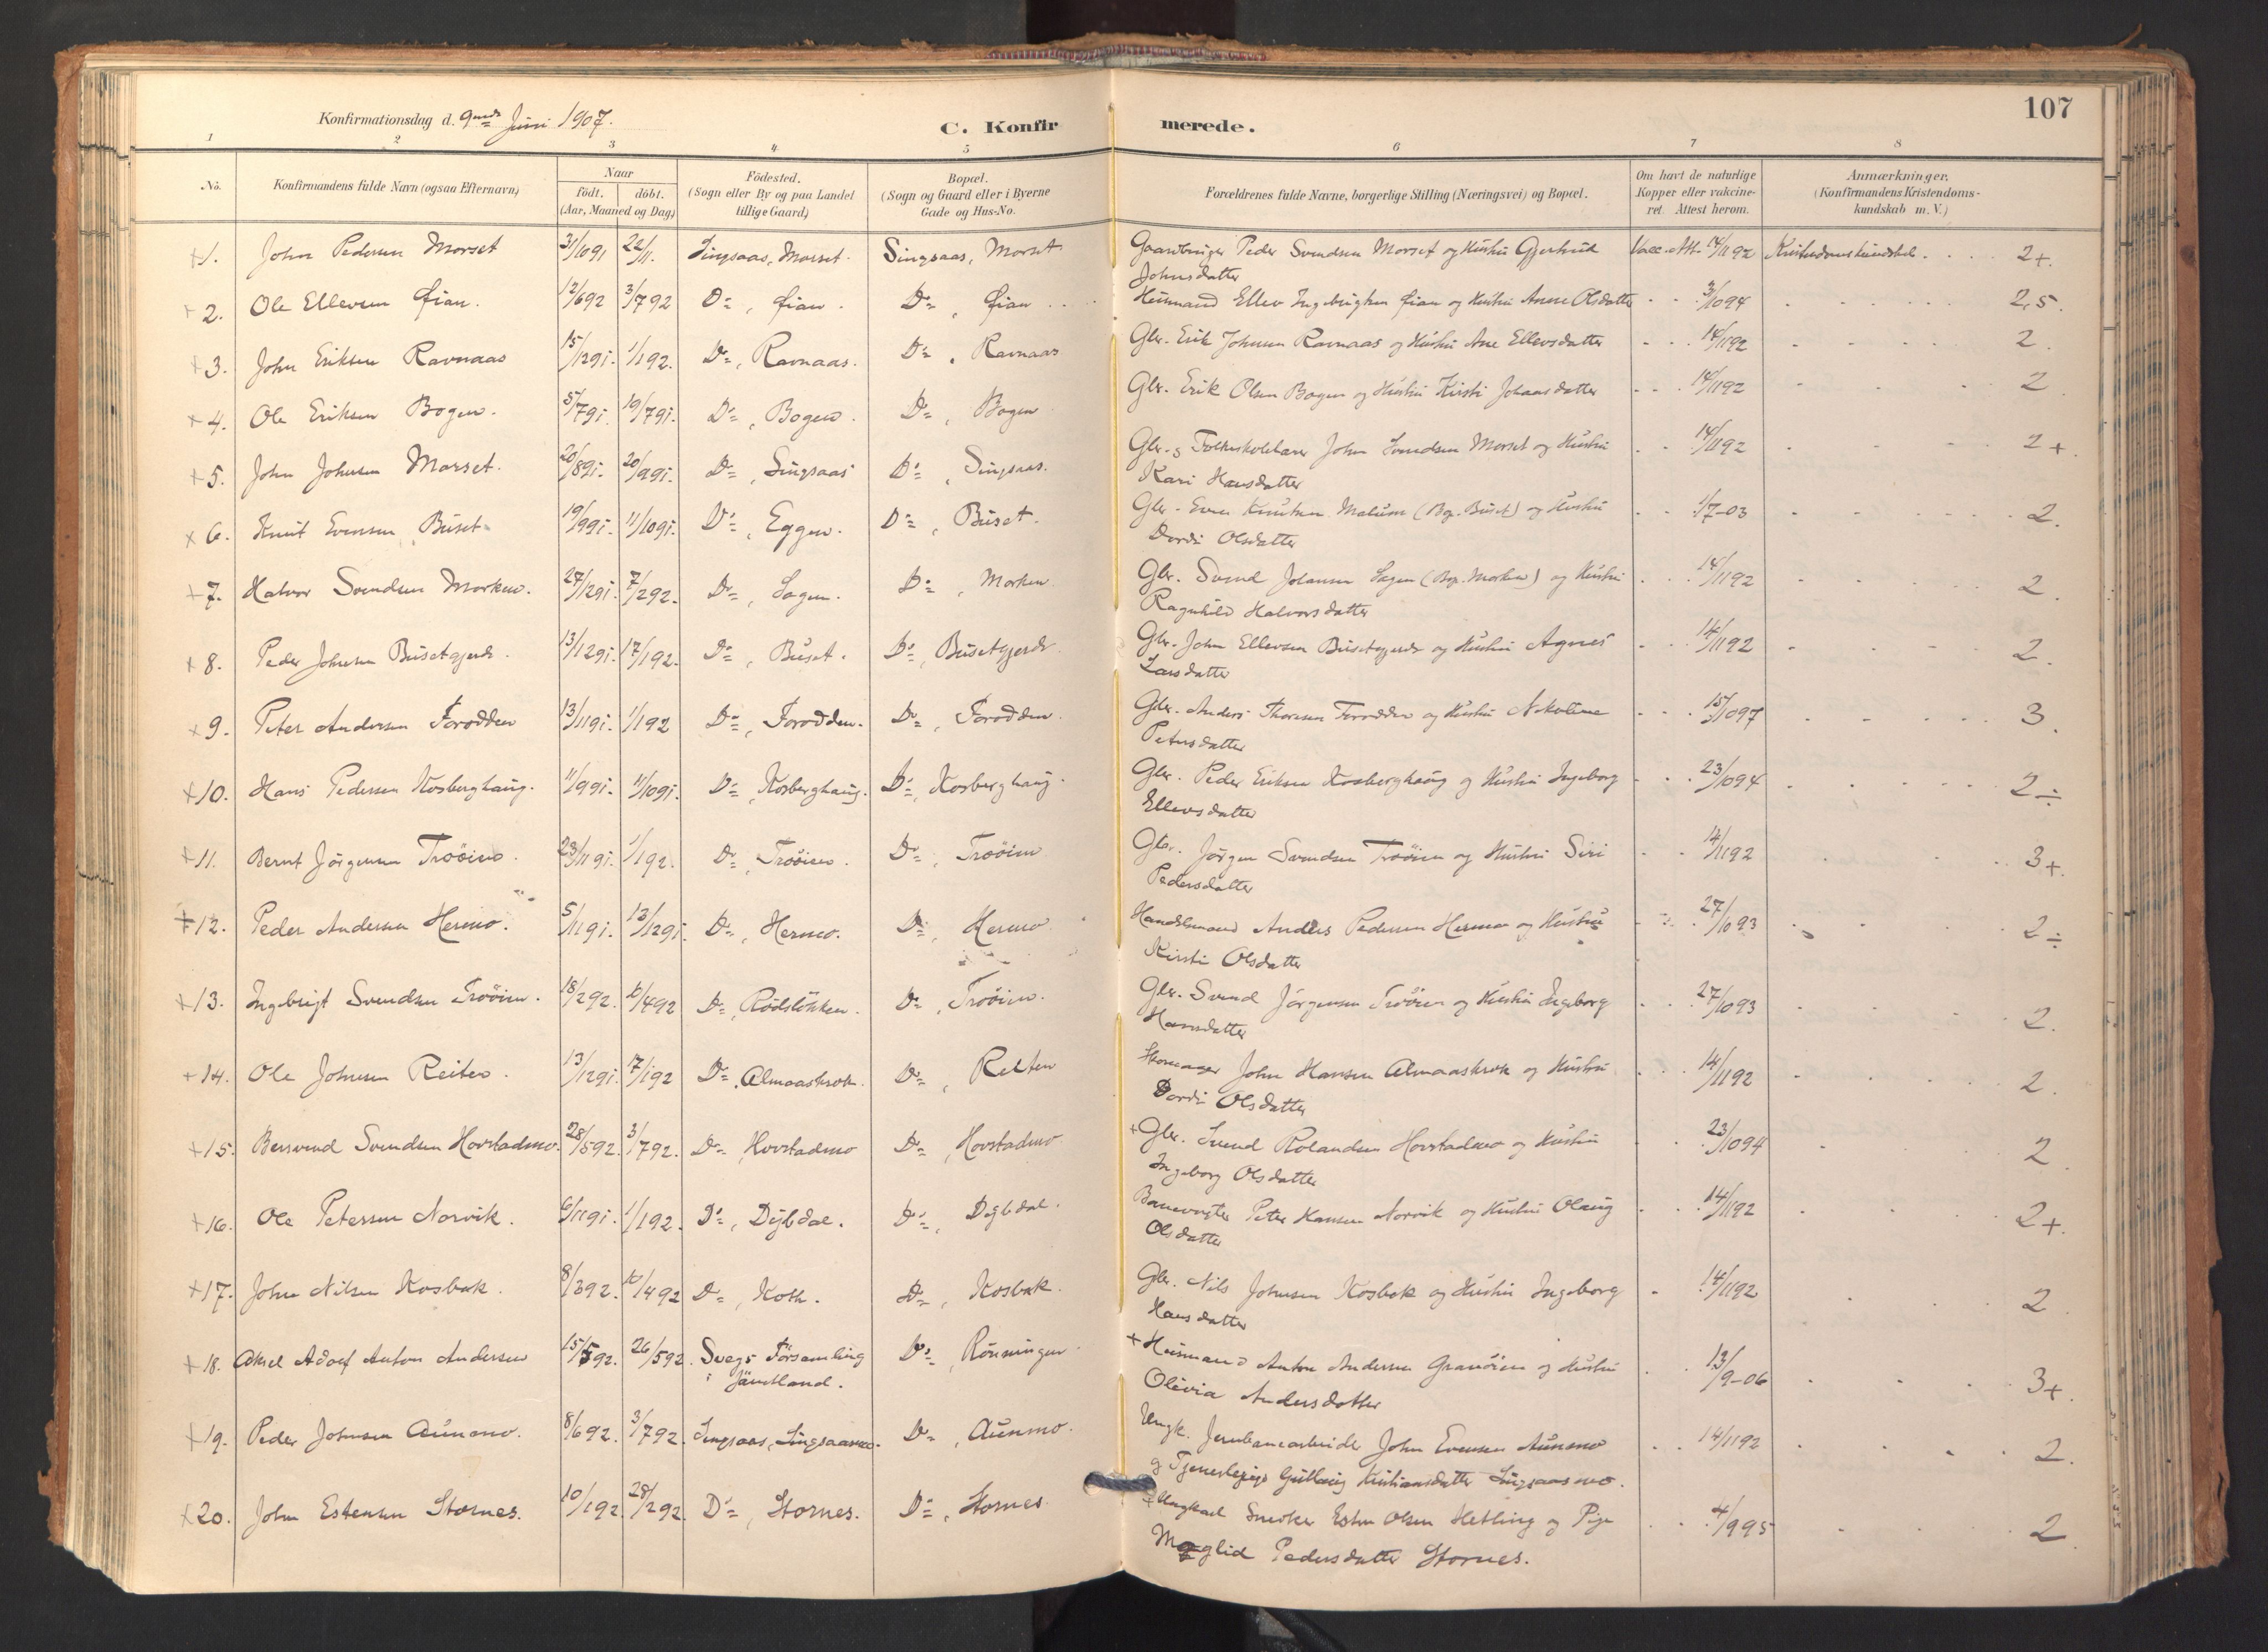 107
Konfirmationsdag d. 9nde Juni 1907.
C. Konfir merede.
1 2 3 4 5 6 7 8
No. Konfirmandens fulde Navn (ogsaa Efternavn) Naar födt. döbt. (Aar, Maaned og Dag) Födested. (Sogn eller By og paa Landet tillige Gaard) Bopæl. (Sogn og Gaard eller i Byerne Gade og Hus-No. Forældrenes fulde Navne, borgerlige Stilling (Næringsvei) og Bopæl. Om havt de naturlige Kopper eller vakcineret. Attest herom. Anmærkninger, (Konfirmandens Kristendomskundskab m. V.)
+1. John Pedersen Morset 31/1091 22/11. Singsaas, Morset. Singsaas, Morset Gaardbruger Peder Svendsen Morset og Hustru Gjertrud Vacc. Att. 14/1192 Kristendomskundskab 2+.
Johnsdatter
+2. Ole Ellevsen Öian. 12/692 3/792 Do, Öian. Do, Öian Husmand Ellev Ingebrigtsen Öian og Hustru Anne Olsdatter 3/1094 2,5.
+3. John Eriksen Ravnaas 15/1291. 1/192. Do, Ravnaas. Do, Ravnaas Gbr. Erik Johnsen Ravnaas og Hustru Ane Ellevsdatter 14/1192 2.
+4. Ole Eriksen Bogen. 5/791. 19/791. Do, Bogen. Do, Bogen Gbr. Erik Olsen Bogen og Hustru Kirsti Johansdatter 14/1192 2
+5. John Johnsen Morset. 20/891. 20/991. Do, Singsaas Do, Singsaas. Gbr. & Folkeskolelærer John Svendsen Morset og Hustru 14/1192 2+.
Kari Hansdatter
+6. Knut Evensen Buset. 19/991. 11/1091. Do, Eggen. Do, Buset. Gbr. Even Knutsen Melum (Bg. Buset) og Hustru 1/7-03 2.
Dordi Olsdatter
+7. Halvor Svendsen Morken. 27/1291. 7/292. Do, Sagen. Do, Morken Gbr. Svend Johansen Sagen (Bop. Morken) og Hustru 14/1192 2.
Ragnhild Halvorsdatter
+8. Peder Johnsen Busetgjerde. 13/1291. 17/192. Do, Buset. Do, Busetgjerde Gbr. John Ellevsen Busetgjerde og Hustru Agnes 14/1192 2.
Larsdatter
+9. Peter Andersen Forodden 13/1191. 1/192 Do, Forodden. Do, Forodden. Gbr. Anders Thoresen Forodden og Hustru Nekoline 15/1097 3.
Petersdatter
+10. Hans Pedersen Kosberghaug. 11/991. 11/1091. Do, Kosberghaug. Do, Kosberghaug. Gbr. Peder Eriksen Kosberghaug og Hustru Ingeborg 23/1094 2÷
Ellevsdatter
+11. Bernt Jörgensen Troöien. 23/1191. 1/192. Do, Troöien. Do, Troöien Gbr. Jörgen Svendsen Troöien og Hustru Siri 14/1192 3+.
Pedersdatter
+12. Peder Andersen Hermo. 5/1191. 13/1291. Do, Hermo. Do, Hermo Handelsmand Anders Pedersen Hermo og Hustru 27/1093 2÷
Kirsti Olsdatter
+13. Ingebrigt Svendsen Troöien. 18/292. 10/492 Do, Rödslökken. Do, Troöien. Gbr. Svend Jörgensen Troöien og Hustru Ingeborg 27/1093 2.
Hansdatter
+14. Ole Johnsen Reiten. 13/1291. 17/192 Do, Almaaskrok. Do, Reiten Skomager John Hansen Almaaskrok og Hustru 14/1192 2.
Dordi Olsdatter
+15. Bersvend Svendsen Hovstadmo. 28/592. 3/792. Do, Hovstadmo Do, Hovstadmo + Gbr. Svend Rolandsen Hovstadmo og Hustru 23/1094 2
Ingeborg Olsdatter
+16. Ole Petersen Norvik. 6/1191. 1/192. Do, Dybdal. Do, Dybdal. Banevogter Peter Hansen Norvik og Hustru Olaug 14/1192 2+.
Olsdatter
+17. John Nilsen Kosbak. 8/392. 10/492 Do, Koth. Do, Kosbak. Gbr. Nils Johnsen Kosbak og Hustru Ingeborg 14/1192 2
Hansdatter
+18. Aksel Adolf Anton Andersen 15/592. 26/592. Svegs Församling Do, Rönningen. + Husmand Anton Andersen Granöien og Hustru 13/9-06 3+.
i Jämtland. Olivia Andersdatter
+19. Peder Johnsen Aunmo. 8/692. 3/792. Singsaas, Singsaasmo. Do, Aunmo. Ungk. Jernbanearbeider John Evensen Aunmo 14/1192 2.
og Tjenestepige Gullaug Kristiansdatter Singsaasmo.
+20. John Estensen Stornes. 10/192. 28/292. Do, Stornes. Do, Stornes. + Ungkarl Snedker Esten Olsen Hetling og Pige 4/995 2
Maglid Pedersdatter Stornes.